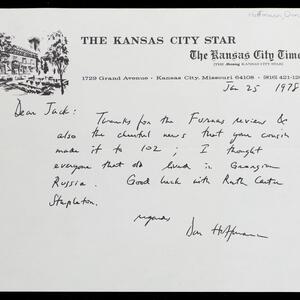 Hoffmann, Don
THE KANSAS CITY STAR
The Kansas City Time
(THE Morning KANSAS CITY STAR)
1729 Grand Avenue · Kansas City, Missouri 64108 · (816) 421-12
Jan 25 1978
Dear Jack:
Thanks for the Furnas review &
also the cheerful news that your cousin
made it to 102; I thought
everyone that old lived in Georgian
Russia. Good luck with Ruth Carter
Stapleton.
regards
Don Hoffmann